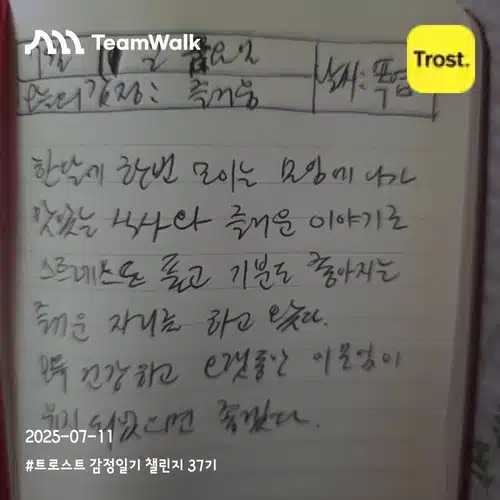 TeamWalk
Trost.
7월 11일 금요일
날씨: 폭염
오늘의 감정: 즐거움
한달에 한번 모이는 모임에 나가
맛있는 식사와 즐거운 이야기로
스트레스도 풀고 기분도 좋아지는
즐거운 자리를 하고 왔다.
모두 건강하고 오랫동안 이 모임이
유지되었으면 좋겠다.
2025-07-11
#트로스트 감정일기 챌린지 37기